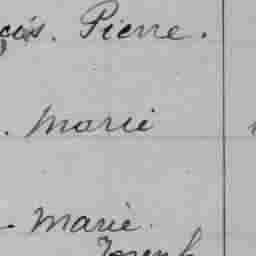 çois. Pierre.
. Marie
- Marie.
Joseph